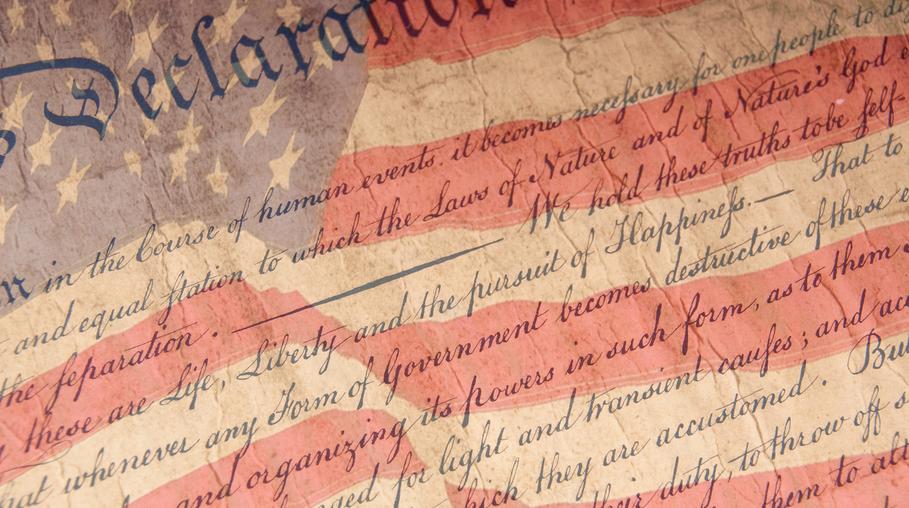 Declaration
n in the Course of human events, it becomes necessary for one people to di
and equal station to which the Laws of Nature and of Nature's God e
the separation. — We hold these truths to be self-
these are Life, Liberty and the pursuit of Happiness. — That to
hat whenever any Form of Government becomes destructive of these e
and organizing its powers in such form, as to them s
ged for light and transient causes; and acc
hich they are accustomed. Bu
heir duty, to throw off s
them to alt